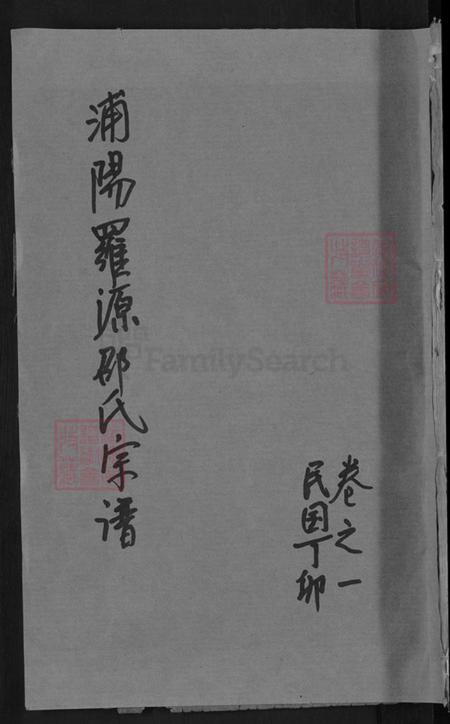 卷之一
民国丁卯
浦陽羅源邵氏宗谱
FamilySearch